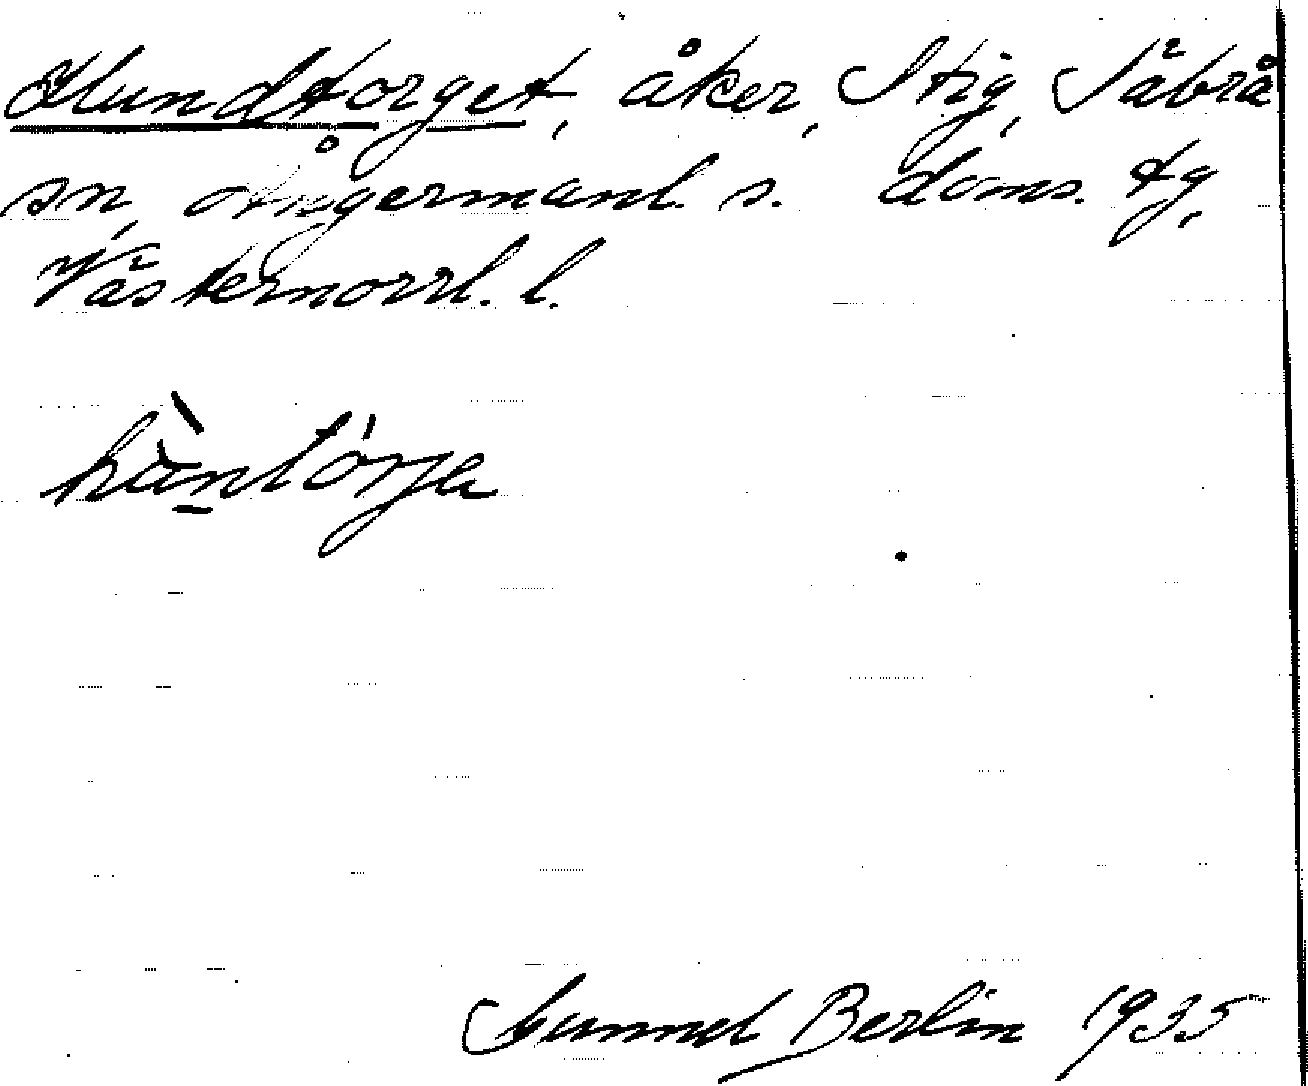 Hundtorget, åker, Stig, Säbrå
sn, Ångermanl. s. doms. tg,
Västernorrl. l.
hùntórje
Gunnel Berlin 1935